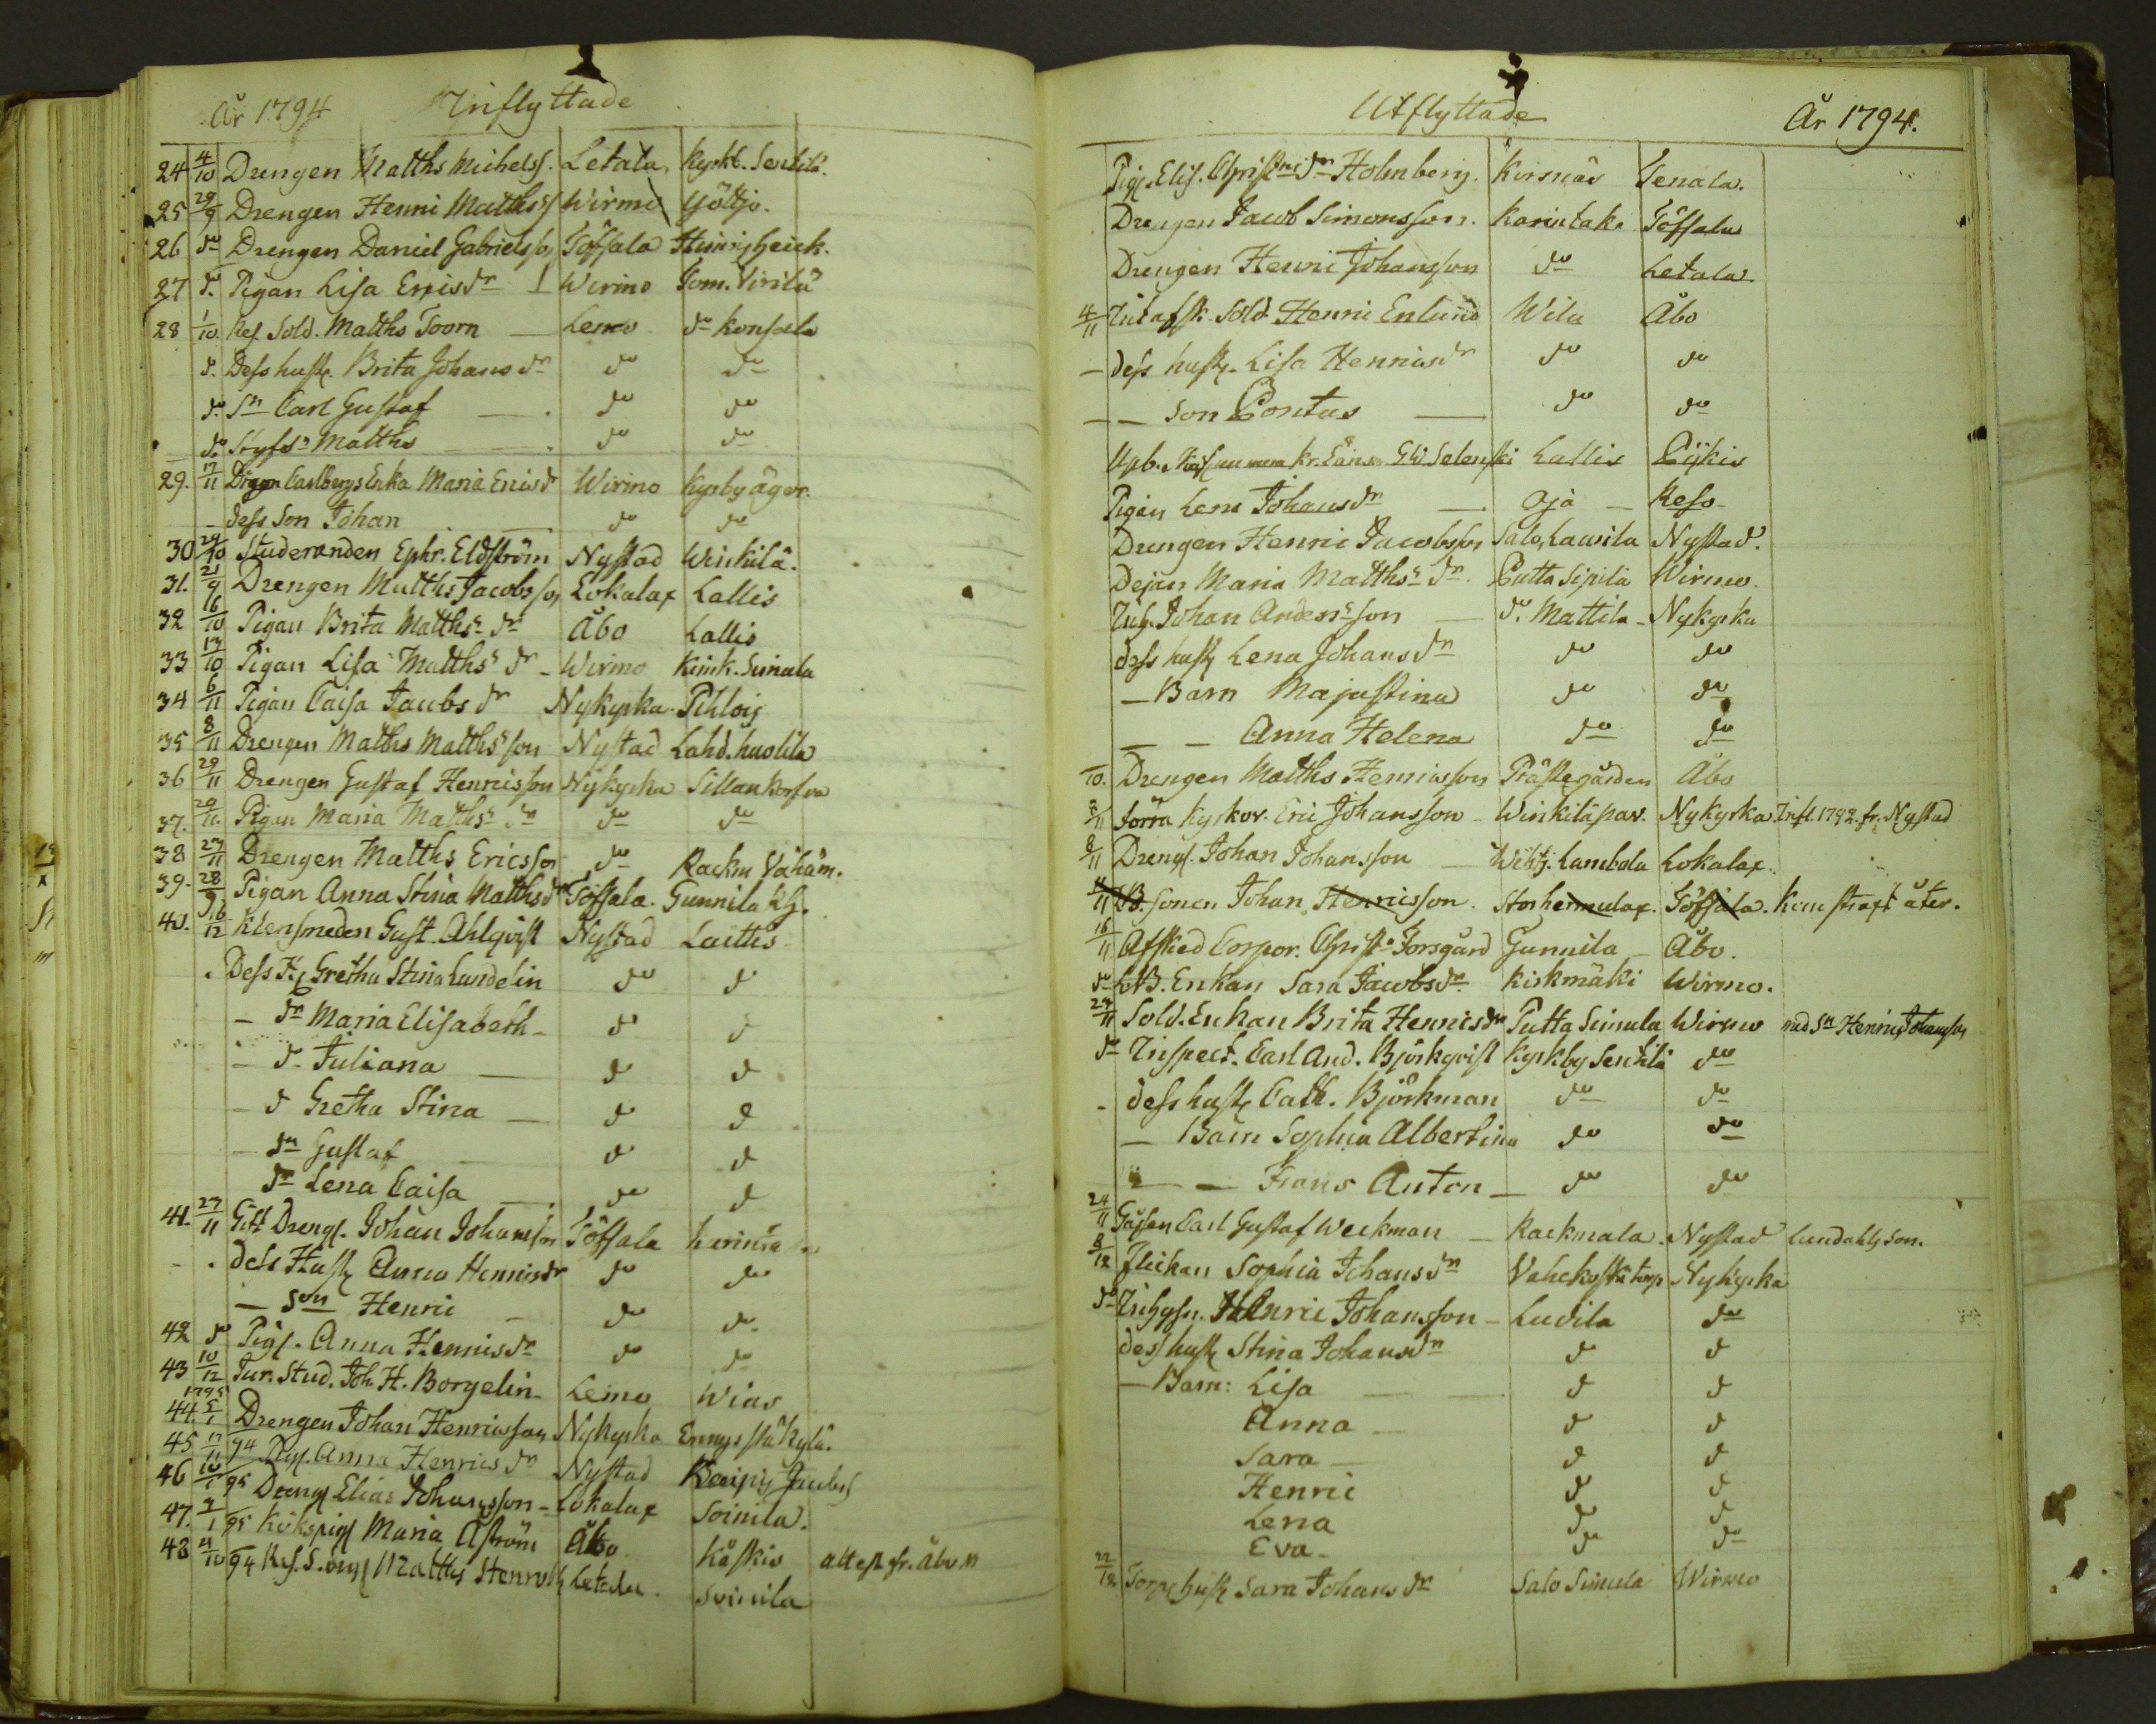 År 1794 Inflyttade
24 4/10 Drengen Matths Michelss. Letala Kyrkb. Seulilä.
25 29/9 Drengen Henric Mathss Wirmo Göltjo.
26 do Drengen Daniel Gabrielsson Töffsala
27 d. Pigan Lisa Ericsdr Wirmo Tom. Virilä
28 1/10 Ref. Sold. Matths Toorn Lemo do Konsala
d. Dess hust. Brita Johansdr do do
do Sn Carl Gustaf do do
do Styfsn Matths do do
29. 17/11 Carlbergs Enka Maria Ericsd Wirmo Kyrkby ägor.
dess Son Johan do do
30 29/10 Studeranden Ephr. Eldström Nystad Winkilä.
31. 21/9 Drengen Matths Jacobsson Lokalax Lallis
32 16/10 Pigan Brita Matthsdr Åbo Lallis
33 13/10 Pigan Lisa Mattsdr Wirmo Kimk. Simula
34 6/11 Pigan Caisa Jacobsdr Nykyrka Pihlois
35 8/11 Drengen Matths Matthsson Nystad Lahd. huolila
36 29/11 Drengen Gustaf Henricsson Nykyrka Sillankorva
37. 29/11 Pigan Maria Matthsdr do do
38 27/11 Drengen Matths Ericsson do Rackm Vähäm.
39. 28/9 Pigan Anna Stina Matthsdr Töffsala. Gunnila
40. 16/12 Klensmeden Gust. Ahlqvist Nystad Laittis
Dess H. Gretha Stina Lundelin do d
dr Maria Elisabeth d d
d. Juliana d d
d Gretha Stina d d
Sn Gustaf d d
dr Lena Caisa do d
41. 27/11 Gift Drengs. Johan Johansson Töffsala
dess Hust Anna Henricsdr do do
Son Henric do do
42 do Pigs. Anna Henricsdr do do
43 10/12 Jur. Stud. Joh. H. Borgelin Lemo Wias
1795
44. 5/1 Drengen Johan Henricsson Nykyrka
45 17/11 94 Pigs. Anna Henricsdr Nystad
46 10/1 95 Drengs Elias Johansson Lokalax Soinila.
47. 7/1 95 Kökspigs Maria Åström Åbo Kåfkis attest fr. Åbo
48 4/10 94 Ref. S. Matths Stenroth Letala Soinila
Utflyttade År 1794.
Pigs. Elis. Christnidr Holmberg. Kirsnäs Tenala.
Drengen Jacob Simonsson. Karintaka Töffsala
Drengen Henric Johansson do Letala
4/11 Afsk. Sold. Henric Enlund Wila Åbo
dess hust. Lisa Henricsdr do do
Son Pontus do do
Selenski Lallis Pijkis
Pigan Lena Johansdr Ojä Reso
Drengen Henric Jacobsson Salo, Lawila Nystad.
Dejan Maria Matthsdr. Putta Sipilä Wirmo.
Inh. Johan Andersson d. Mattila Nykyrka
dess hust Lena Johansdr do do
Barn Majastina do do
Anna Helena do do
10. Drengen Matths Henricsson Prästegården Åbo
3/11 Förra Kyrkov. Eric Johansson Winkiläpar. Nykyrka Infl. 1792. fr. Nystad
8/11 Drengs. Johan Johansson Wihtj. Lambola Lokalax.
4/11 B. sonen Johan Henricsson. Storheimalax. Töffsala. Kom straxt åter.
16/11 Afsked Corpor. Christ. Forsgård Gunnila Åbo.
do B. Enkan Sara Jacobsdr. Kirkmäki Wirmo.
27/11 Sold. Enkan Brita Henricsdr Putta Simula Wirmo med Sn Henric Johansson
do Inspect. Carl And. Björkqvist Kyrkby Seulilä do
dess hust Cath. Björkman do do
Barn Sophia Albertina do do
Frans Anton do do
24/11 Gossen Carl Gustaf Weckman Rackmala. Nystad Lundahls son.
8/12 Flickan Sophia Johansdr Torp Nykyrka
do Inhysn. Henric Johansson Ludila do
des hust Stina Johansdr d d
Barn: Lisa d d
Anna d d
Sara d d
Henric d d
Lena d d
Eva do do
22/12 Torps hust Sara Johansdr Salo Simula Wirmo